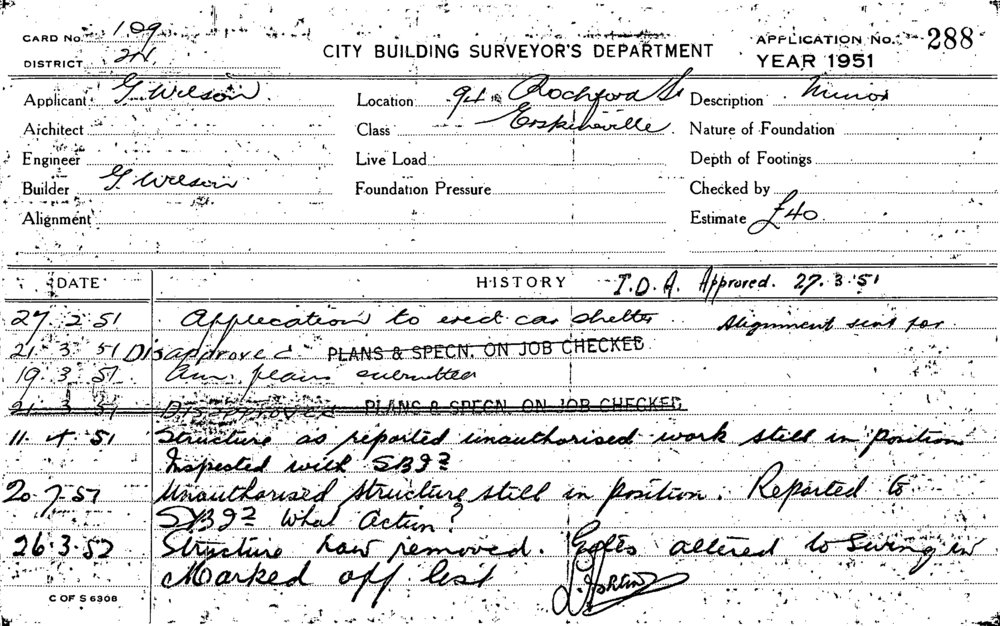 CARD No. 109
DISTRICT 2H
CITY BUILDING SURVEYOR'S DEPARTMENT
APPLICATION No. 288
YEAR 1951
Applicant G. Wilson
Location 94 Rochford St
Description Minor
Architect
Class Erskineville
Nature of Foundation
Engineer
Live Load
Depth of Footings
Builder G. Wilson
Foundation Pressure
Checked by
Alignment
Estimate £40
DATE HISTORY T.D.A. Approved. 27.3.51
27 2 51 Application to erect car shelter Alignment sent for
21 3 51 Disapproved PLANS & SPECN. ON JOB CHECKED
19 3 51 Am. plans submitted
21 3 51 Disapproved PLANS & SPECN. ON JOB CHECKED
11. 4. 51 Structure as reported unauthorised work still in position
Inspected with SBI
20.7.51 Unauthorised structure still in position. Reported to
SBI What Action?
26.3.52 Structure now removed. Gates altered to swing in
Marked off list
C OF S 6308